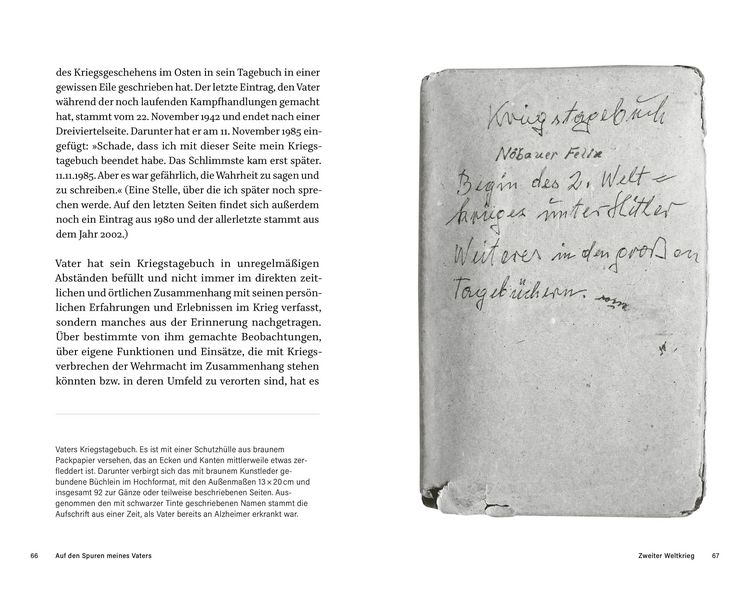 des Kriegsgeschehens im Osten in sein Tagebuch in einer
gewissen Eile geschrieben hat. Der letzte Eintrag, den Vater
während der noch laufenden Kampfhandlungen gemacht
hat, stammt vom 22. November 1942 und endet nach einer
Dreiviertelseite. Darunter hat er am 11. November 1985 ein-
gefügt: »Schade, dass ich mit dieser Seite mein Kriegs-
tagebuch beendet habe. Das Schlimmste kam erst später.
11.11.1985. Aber es war gefährlich, die Wahrheit zu sagen und
zu schreiben.« (Eine Stelle, über die ich später noch spre-
chen werde. Auf den letzten Seiten findet sich außerdem
noch ein Eintrag aus 1980 und der allerletzte stammt aus
dem Jahr 2002.)
Vater hat sein Kriegstagebuch in unregelmäßigen
Abständen befüllt und nicht immer im direkten zeit-
lichen und örtlichen Zusammenhang mit seinen persön-
lichen Erfahrungen und Erlebnissen im Krieg verfasst,
sondern manches aus der Erinnerung nachgetragen.
Über bestimmte von ihm gemachte Beobachtungen,
über eigene Funktionen und Einsätze, die mit Kriegs-
verbrechen der Wehrmacht im Zusammenhang stehen
könnten bzw. in deren Umfeld zu verorten sind, hat es
Vaters Kriegstagebuch. Es ist mit einer Schutzhülle aus braunem
Packpapier versehen, das an Ecken und Kanten mittlerweile etwas zer-
fleddert ist. Darunter verbirgt sich das mit braunem Kunstleder ge-
bundene Büchlein im Hochformat, mit den Außenmaßen 13 × 20 cm und
insgesamt 92 zur Gänze oder teilweise beschriebenen Seiten. Aus-
genommen den mit schwarzer Tinte geschriebenen Namen stammt die
Aufschrift aus einer Zeit, als Vater bereits an Alzheimer erkrankt war.
66 Auf den Spuren meines Vaters
Kriegstagebuch
Nöbauer Felix
Begin des 2. Welt=
krieges unter Hitler
Weiteres in den großen
Tagebüchern.
Zweiter Weltkrieg 67